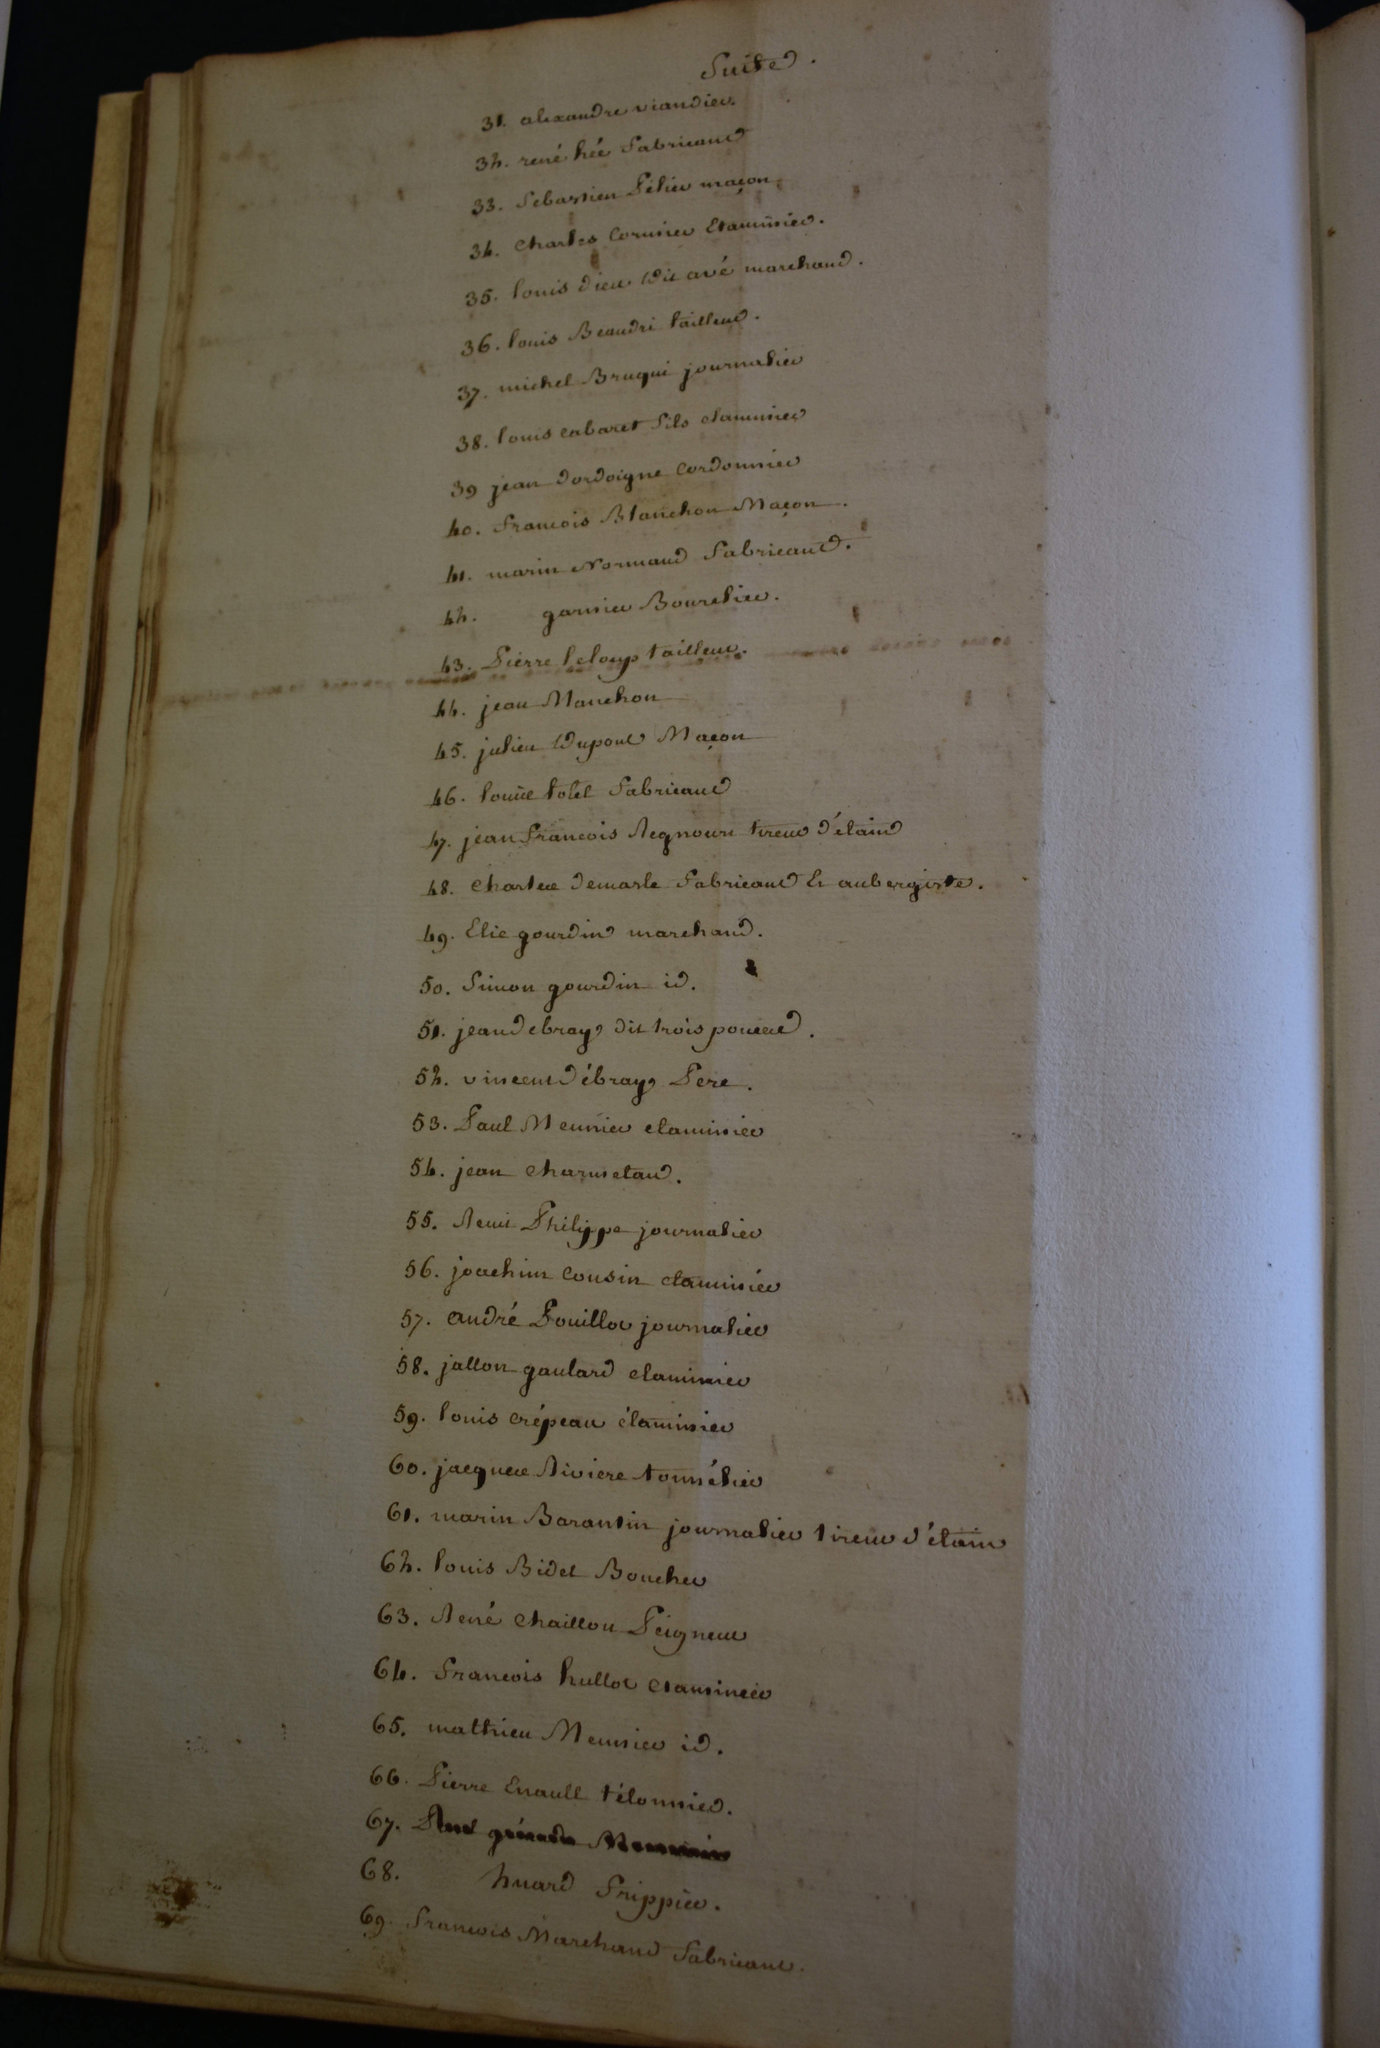 Suite.
31. alexandre viandier.
32. rené hée fabricant
33. Sebastien Pelier maçon
34. Charles Cormier Etaminier.
35. louis dieu dit avé marchand.
36. louis Beaudri tailleur.
37. michel Bruqui journalier
38. louis cabaret fils etaminier
39 jean dordoigne Cordonnier
40. francois Blanchon Maçon.
41. marin Normand fabricant.
42. garnier Bourelier.
43. Pierre leloup tailleur.
44. jean Manchon
45. julien Dupont Maçon
46. fabricant
47. jean francois Regnouin tireur d'étaim
48. Charles demarle fabricant Et aubergiste.
49. Elie gourdin marchand.
50. Simon gourdin id.
51. jean debray dit trois pouces.
52. vincent débray Pere.
53. Paul Meunier etaminier
54. jean Charmetau.
55. Remi Philippe journalier
56. joachim Cousin etaminier
57. andré Pouillot journalier
58. jallon gaulard etaminier
59. louis crépeau étaminier
60. jacques Riviere tonnélier
61. marin Barantin journalier tireur d'étaim
62. louis Bidet Boucher
63. René Chaillou Peigneur
64. francois hullot etaminier
65. mathieu Meunier id.
66. Pierre Enault télonnier.
67.
68. huard frippier.
69. francois Marchand fabricant.